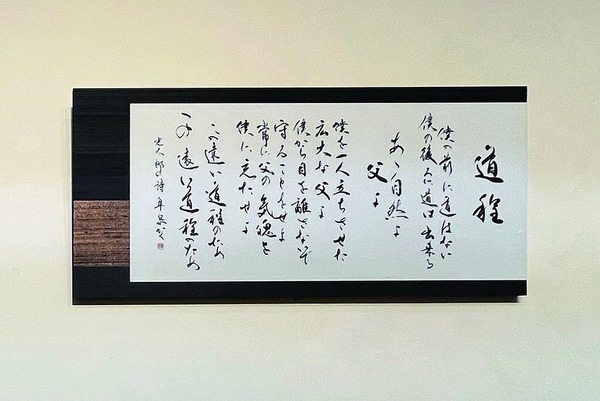 道程
僕の前に道はない
僕の後ろに道は出来る
あゝ自然よ
父よ
僕を一人立ちさせた
広大な父よ
僕から目を離さないで
守ることをせよ
常に父の気魄を
僕に充たせよ
この遠い道程のため
この遠い道程のため
光太郎詩